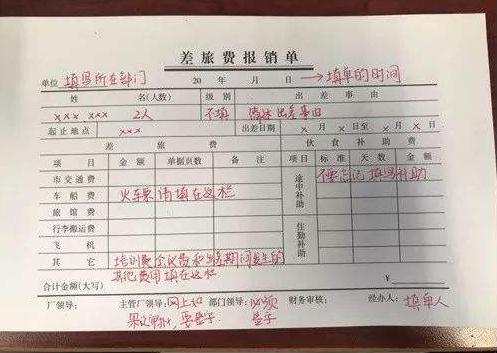 差旅费报销单
单位 填写所在部门 20 年 月 日 → 填单的时间
姓 名(人数) 级别 出差事由
xxx xxx 2人 不填 简述出差事由
起止地点 xxx 出差日期 x 月 x 日至 x 月 x 日
差 旅 费 伙食补助费
项 目 金额 单据页数 备 注 项目 标准 天数 金额
市交通费 途中补助 便忘记填写补助
车船费 火车票请填在这栏
旅馆费
行李搬运费 住勤补助
飞 机
其 它 培训费会议费和出差期间发生的
其他费用填在这栏
合计金额(大写) ¥
厂领导: 主管厂领导:网上如 部门领导:必须 财务审核: 经办人: 填单人
果没审批,要签字 签字